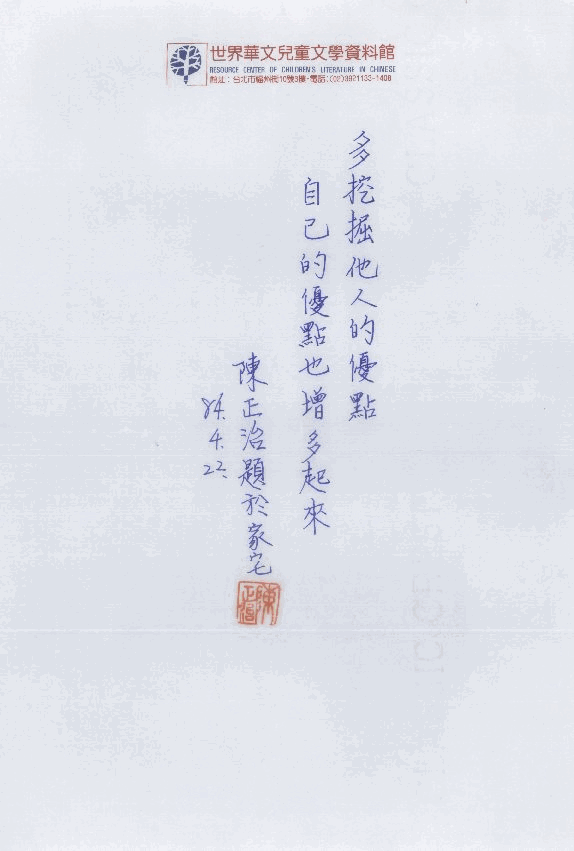 世界華文兒童文學資料館
RESOURCE CENTER OF CHILDREN'S LITERATURE IN CHINESE
館址：台北市福州街10號3樓・電話：(02)3921133-1408
多挖掘他人的優點
自己的優點也增多起來
陳正治題於家宅
84.4.22.
陳正治